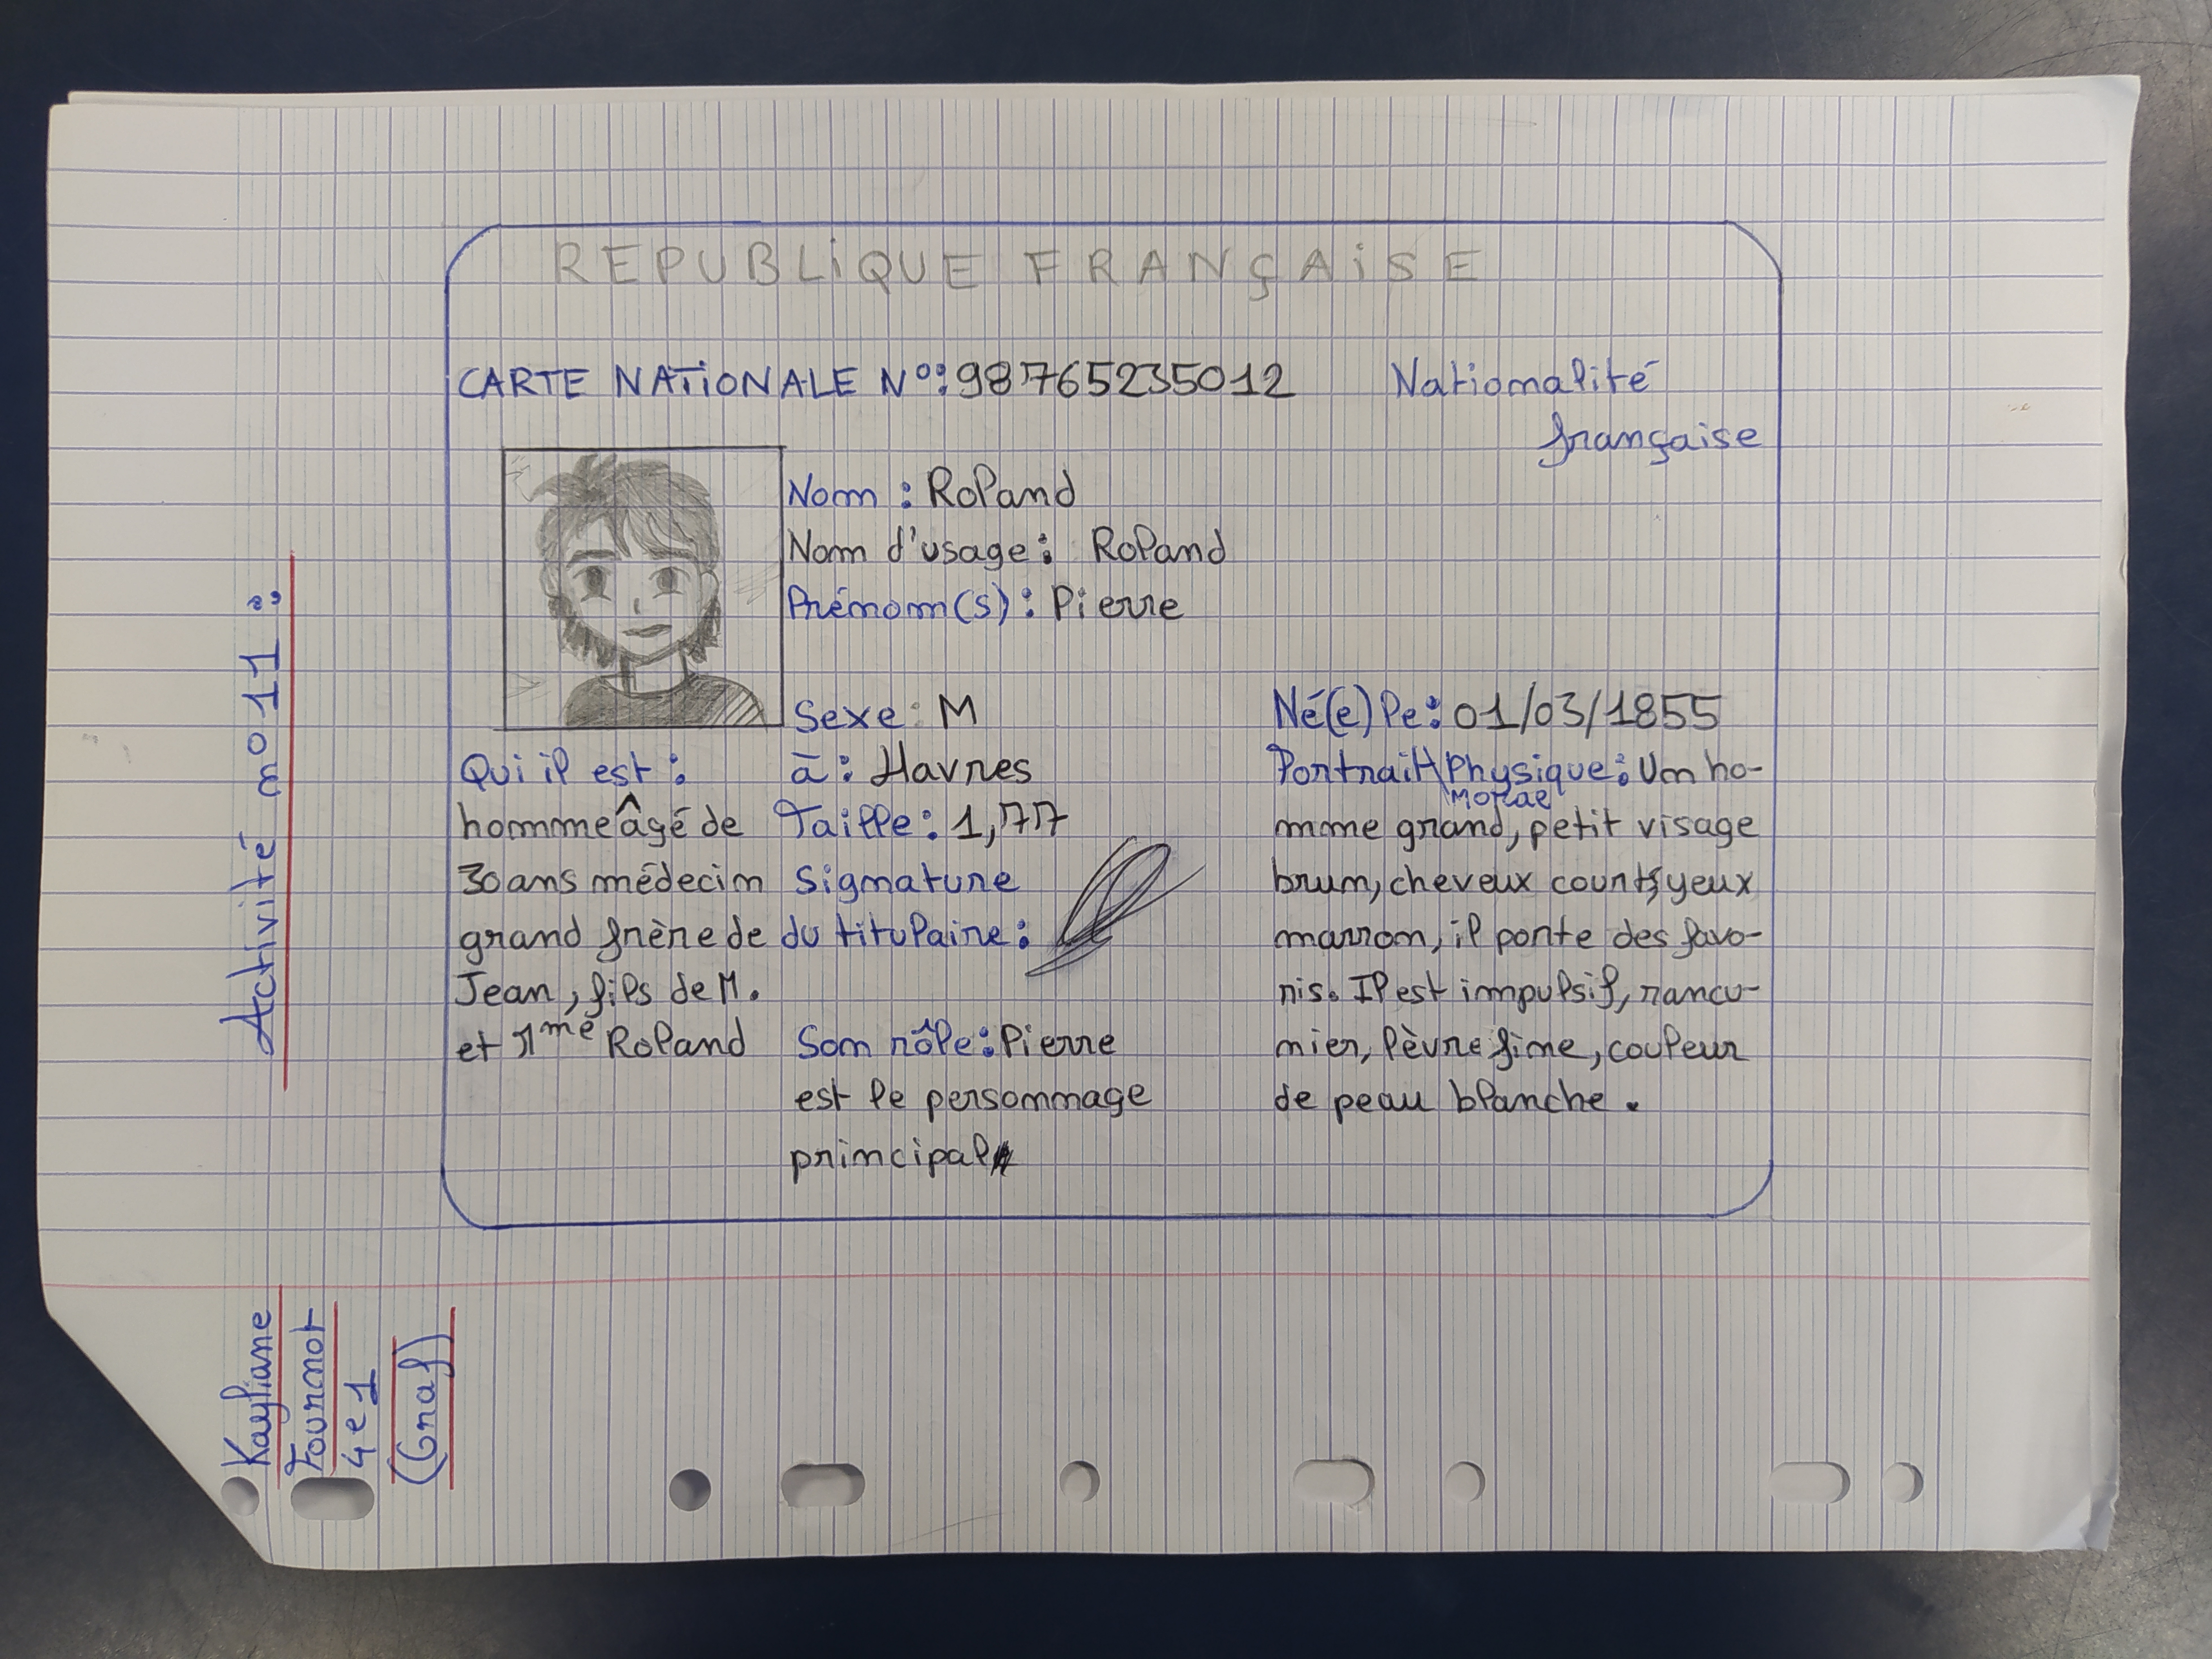 REPUBLIQUE FRANÇAISE
CARTE NATIONALE N°: 98765235012 Nationalité
française
Nom : Roland
Nom d'usage : Roland
Prénom(s) : Pierre
Sexe : M Né(e) le : 01/03/1855
Qui il est :
homme âgé de
30 ans médecin
grand frère de
Jean, fils de M.
et Mme Roland
à : Havres
Taille : 1,77
Signature
du titulaire :
Son rôle : Pierre
est le personnage
principal
Portrait Physique : Un ho-
Morae
mme grand, petit visage
brun, cheveux courts, yeux
marron, il porte des favo-
ris. Il est impulsif, rancu-
nier, lèvre fine, couleur
de peau blanche.
Activité n°11 :
Kayliane
Fournot
4e1
(Graf)